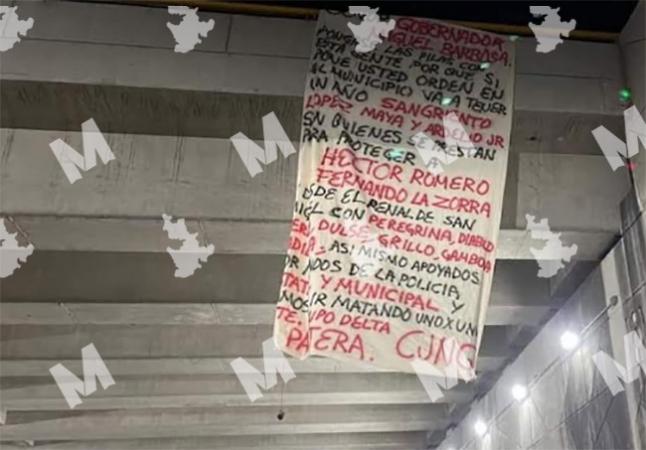 GOBERNADOR
MIGUEL BARBOSA.
LAS PILAS CON
ESTA GENTE POR QUE SI
PONE USTED ORDEN EN
MUNICIPIO VA A TENER
UN AÑO SANGRIENTO
LOPEZ MAYA Y ARDELIO JR.
QUIENES SE PRESTAN
PARA PROTEGER A
HECTOR ROMERO
FERNANDO LA ZORRA
EL PENAL DE SAN
CON PEREGRINA, DIABLO
DULSE, GRILLO, GAMBOA
ASI MISMO APOYADOS
DE LA POLICIA
Y MUNICIPAL Y
MATANDO UNO X UN
DELTA
CJNG
M
M
M
M
M
M
M